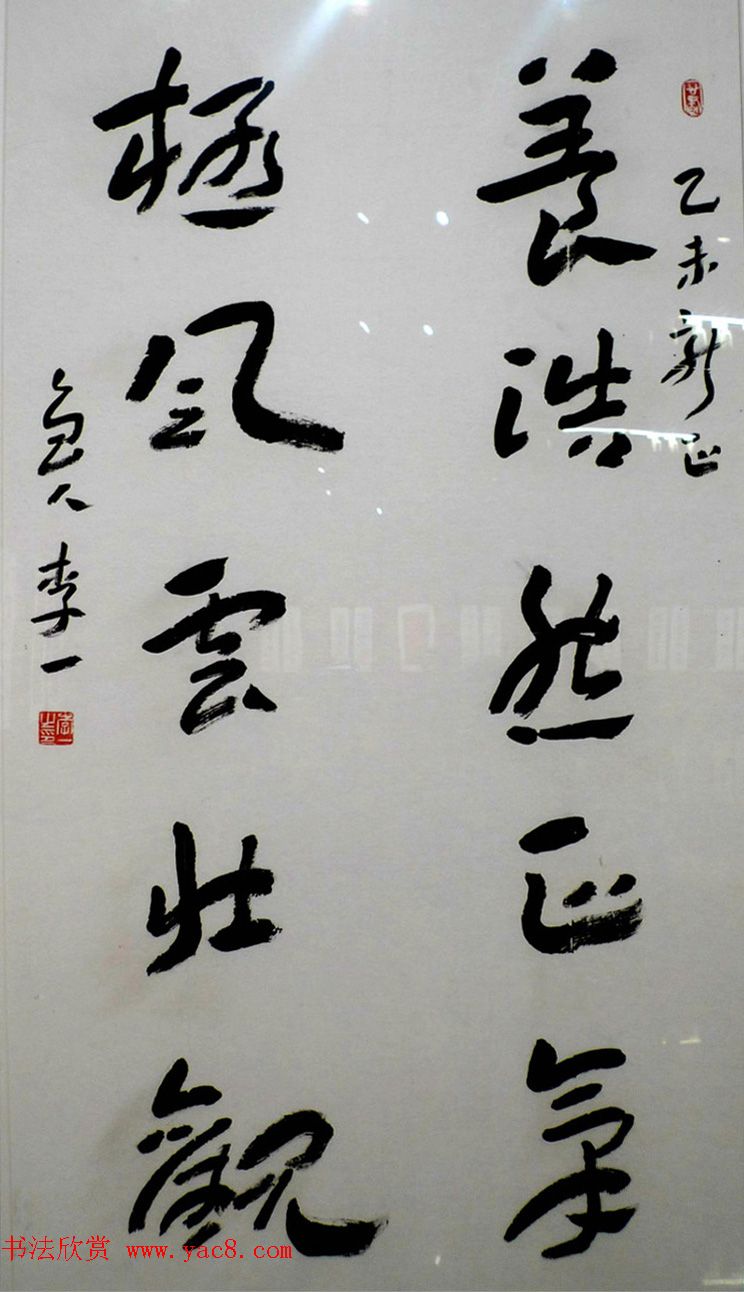 乙未新正
養浩然正氣
極風雲壯觀
魯人李一
李一之印
书法欣赏 www.yac8.com